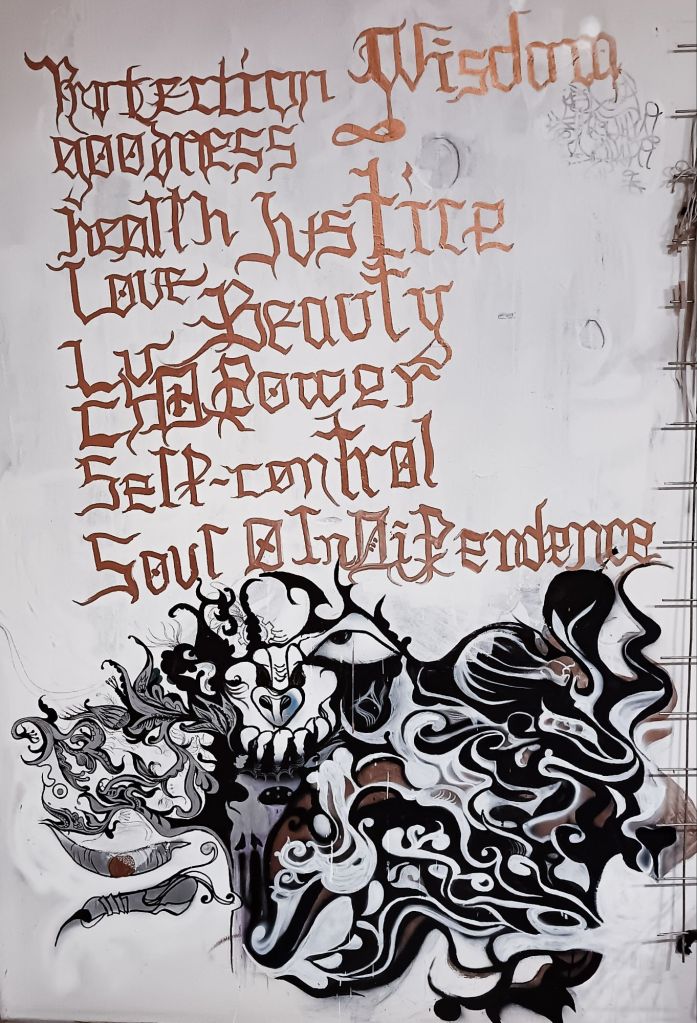 Protection Wisdom
goodness
health Justice
Love Beauty
Power
Self-control
Soul InDiPendence